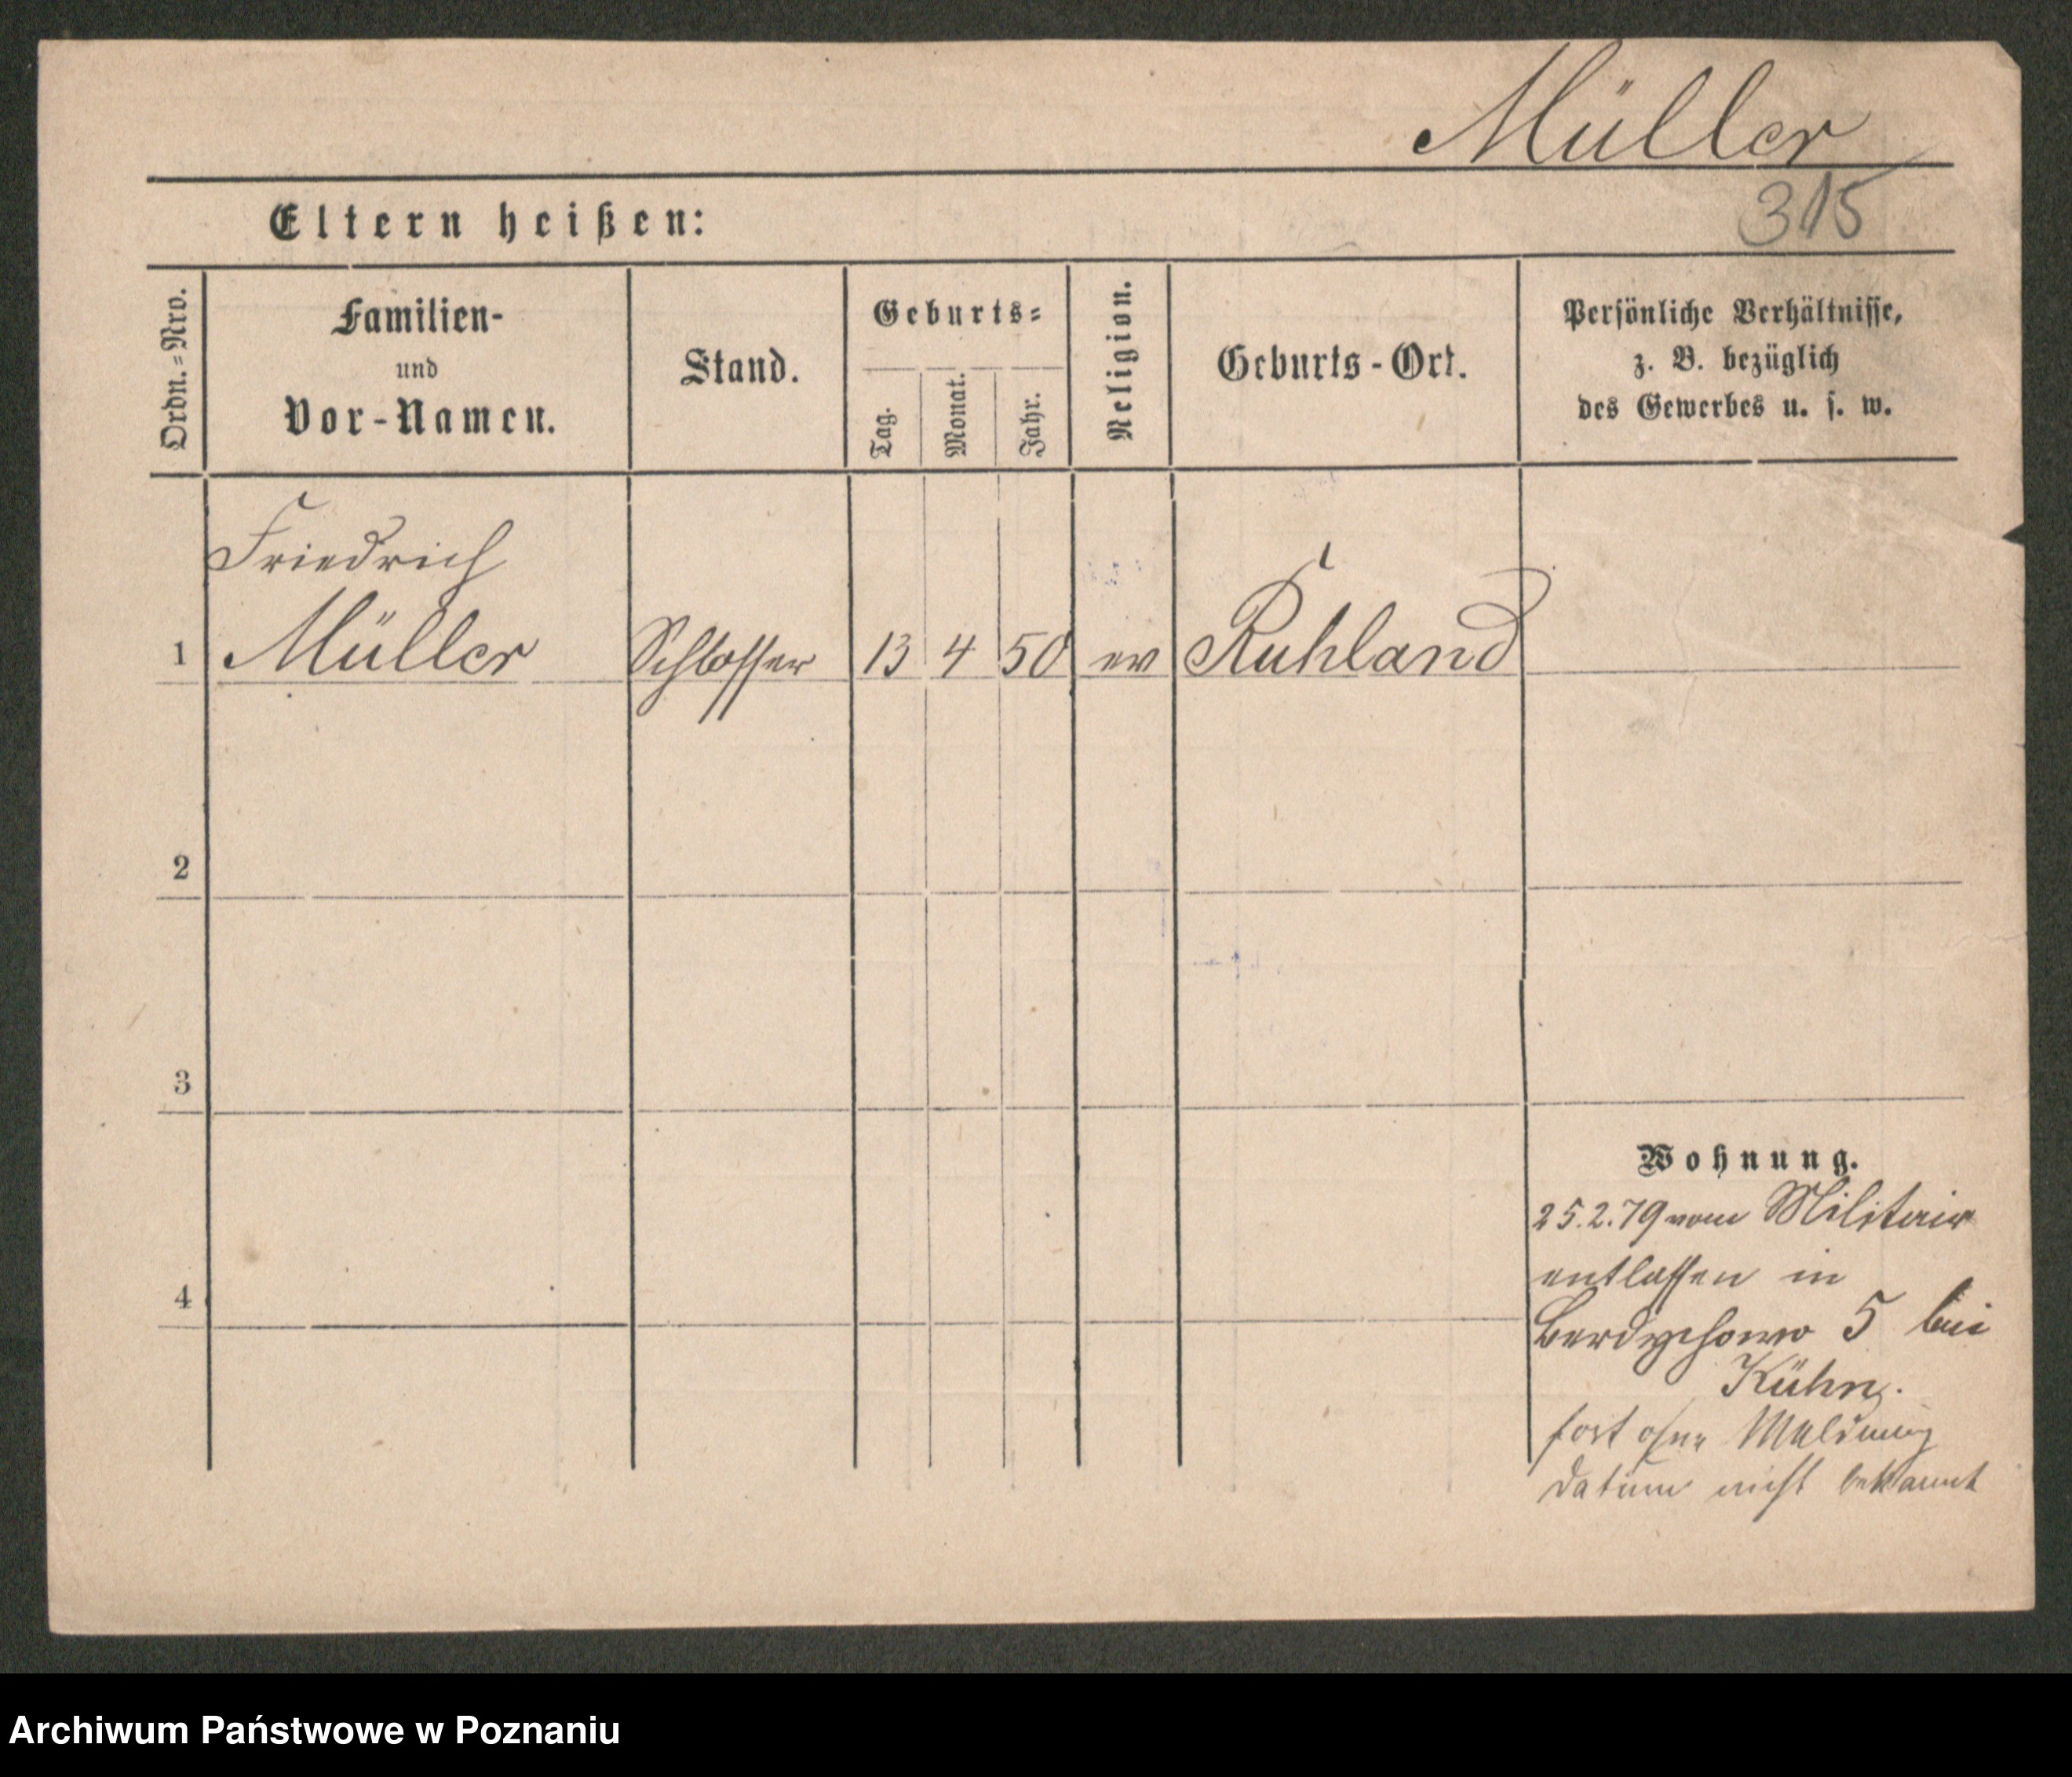 Müller
315
Eltern heißen:
Ordn.=Nro.
Familien-
und
Vor-Namen.
Stand.
Geburts=
Tag.
Monat.
Jahr.
Religion.
Geburts-Ort.
Persönliche Verhältnisse,
z. B. bezüglich
des Gewerbes u. s. w.
Friedrich
1 Müller Schlosser 13 4 50 ev Ruhland
2
3
Wohnung.
25.2.79 vom Militair
entlassen in
4
Berdychowo 5 bei
Kühn.
fort ohne Meldung
Datum nicht bekannt
Archiwum Państwowe w Poznaniu